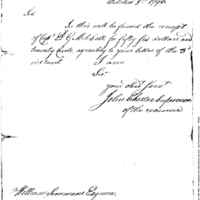 October 8th 1796
Sir
In this will be found the receipt
of Capt. D. G. Mitchell for fifty six dollars and
twenty cents, agreeably to your letter of the 3d
instant. I am
Sir
your obedt. servt.
John Chester Supervisor
of the revenue
William Simmons Esquire